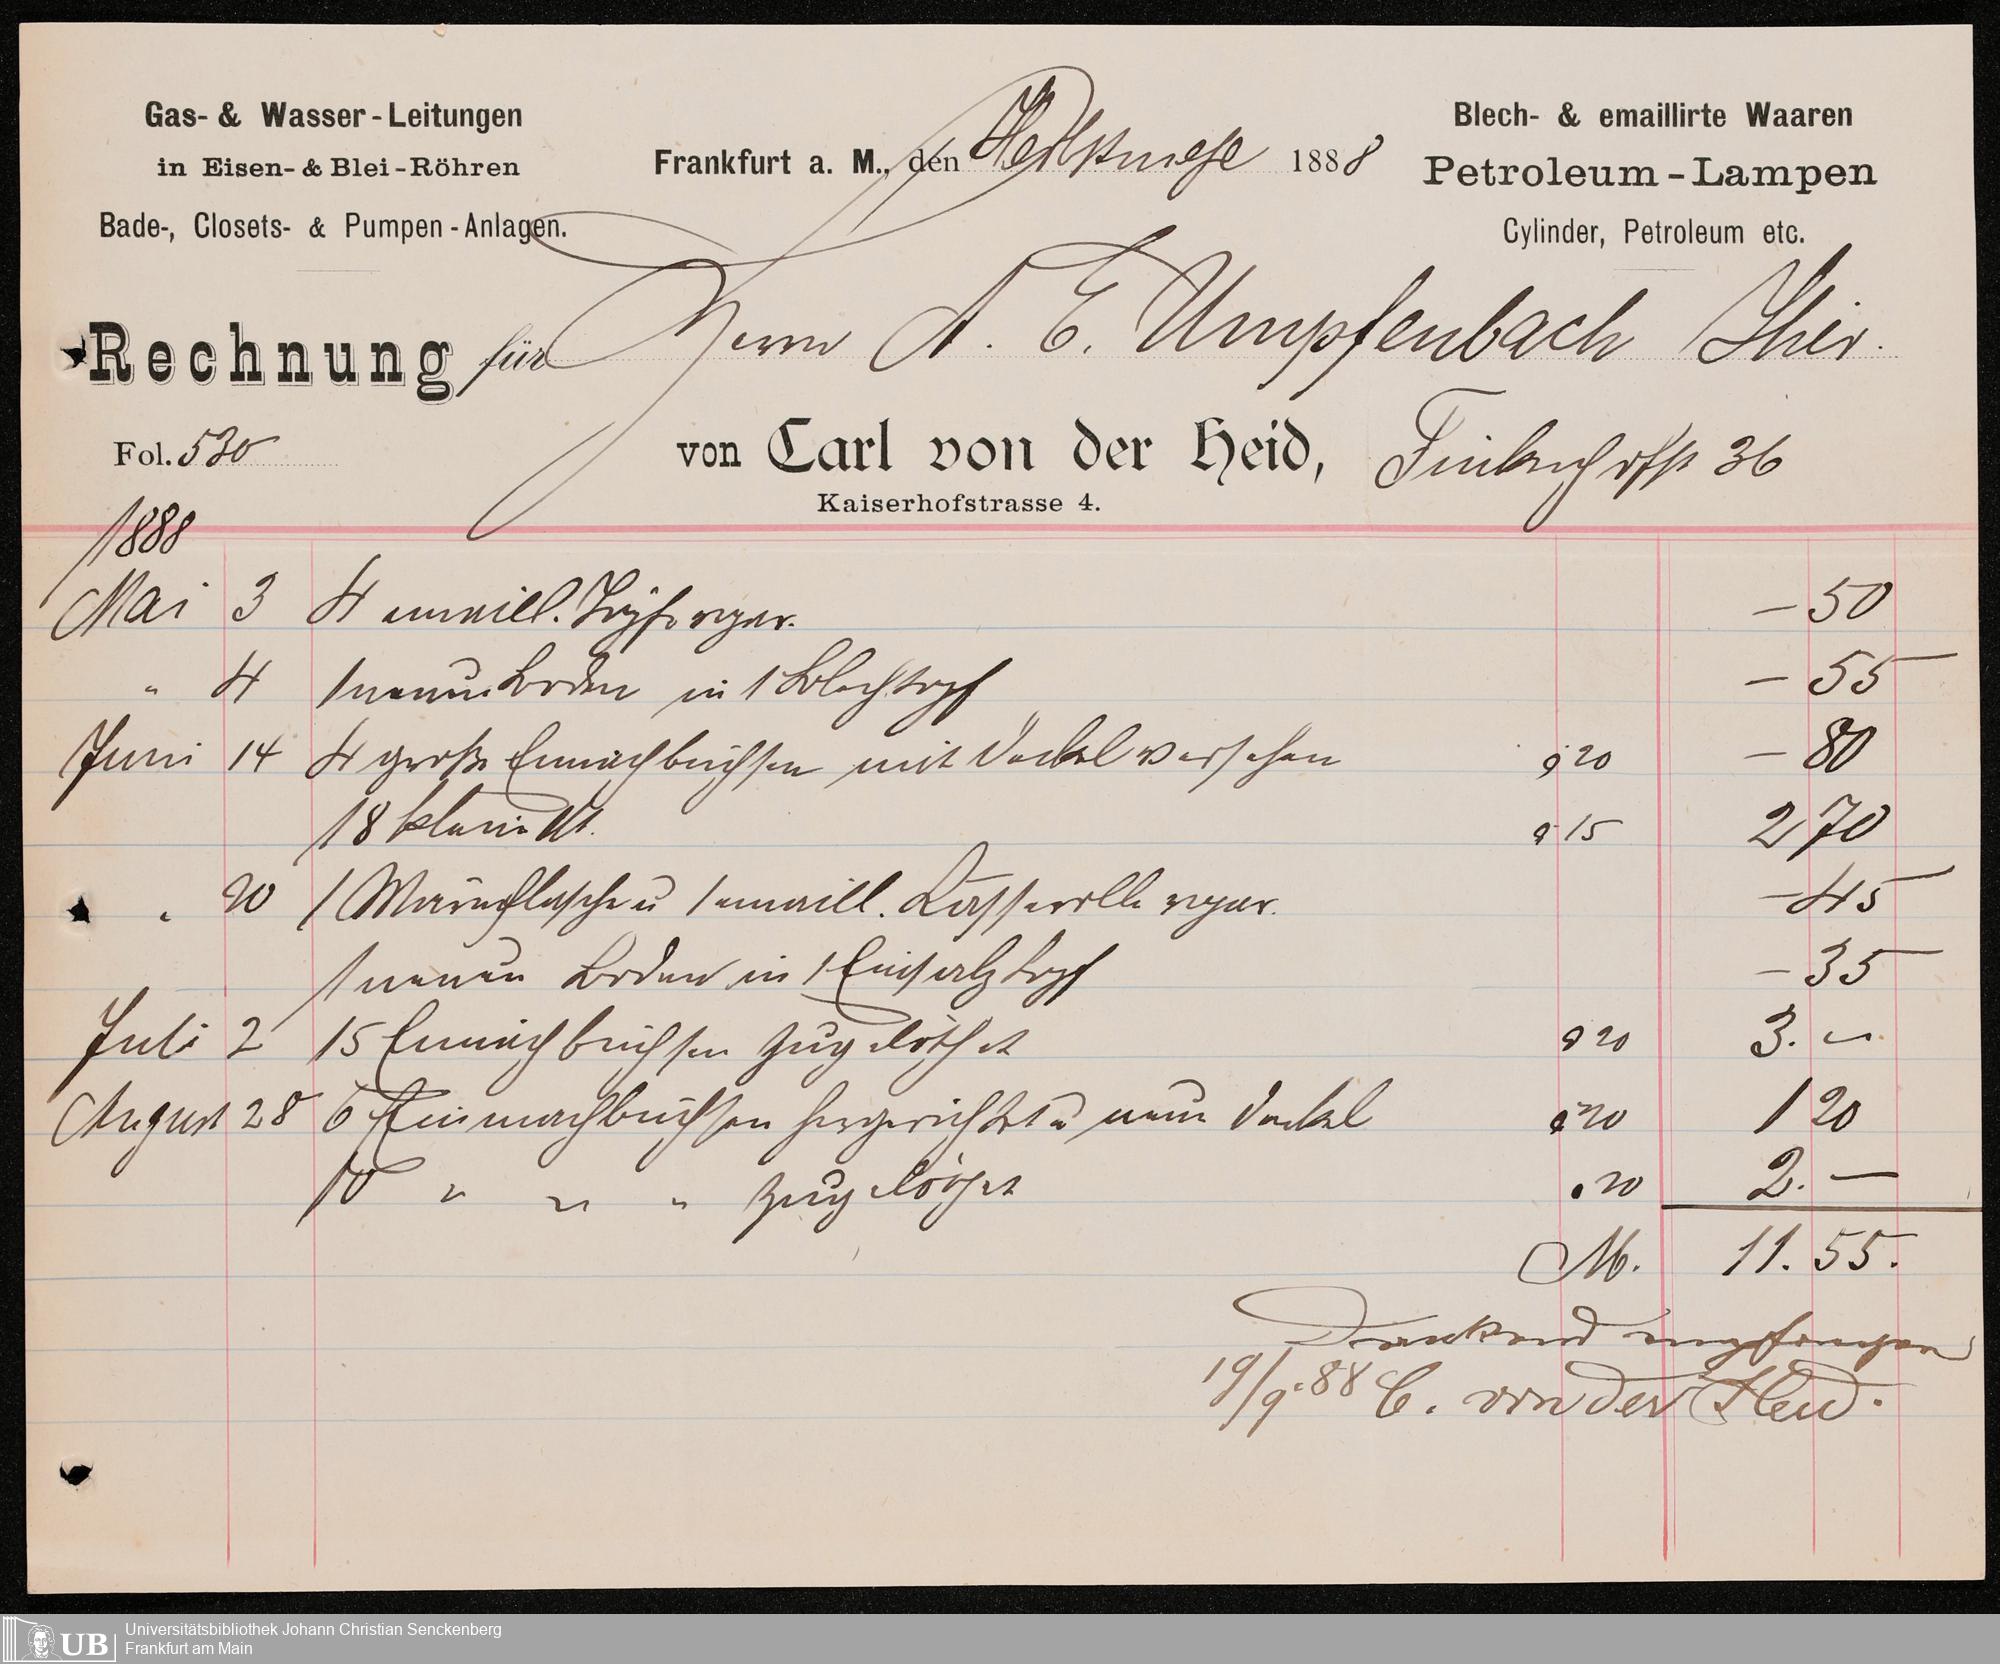 Gas- & Wasser-Leitungen
in Eisen- & Blei-Röhren
Bade-, Closets- & Pumpen-Anlagen.
Frankfurt a. M., den Herbstmesse 1888
Blech- & emaillirte Waaren
Petroleum-Lampen
Cylinder, Petroleum etc.
Rechnung für Herrn A. E. Umpfenbach Hier.
Fol. 530
von Carl von der Heid,
36
Kaiserhofstrasse 4.
1888
Mai 3 4 emaill. Töpfe repar. – 50
" 4 1 neuen Boden in 1 Blechtopf – 55
Juni 14 4 große Einmachbüchsen mit Deckel versehen a 20 – 80
18 kleine dt. a 15 2 70
" 20 1 Wärmflasche u 1 emaill. Casserolle repar. – 45
1 neuen Boden in 1 Einsatztopf – 35
Juli 2 15 Einmachbüchsen zugelöthet a 20 3. –
August 28 6 Einmachbüchsen hergerichtet u neue Deckel a 20 1 20
10 " " " zugelöthet a 20 2. –
M. 11. 55.
Dankend empfangen
19/9. 88 C. von der Heid.
UB
Universitätsbibliothek Johann Christian Senckenberg
Frankfurt am Main